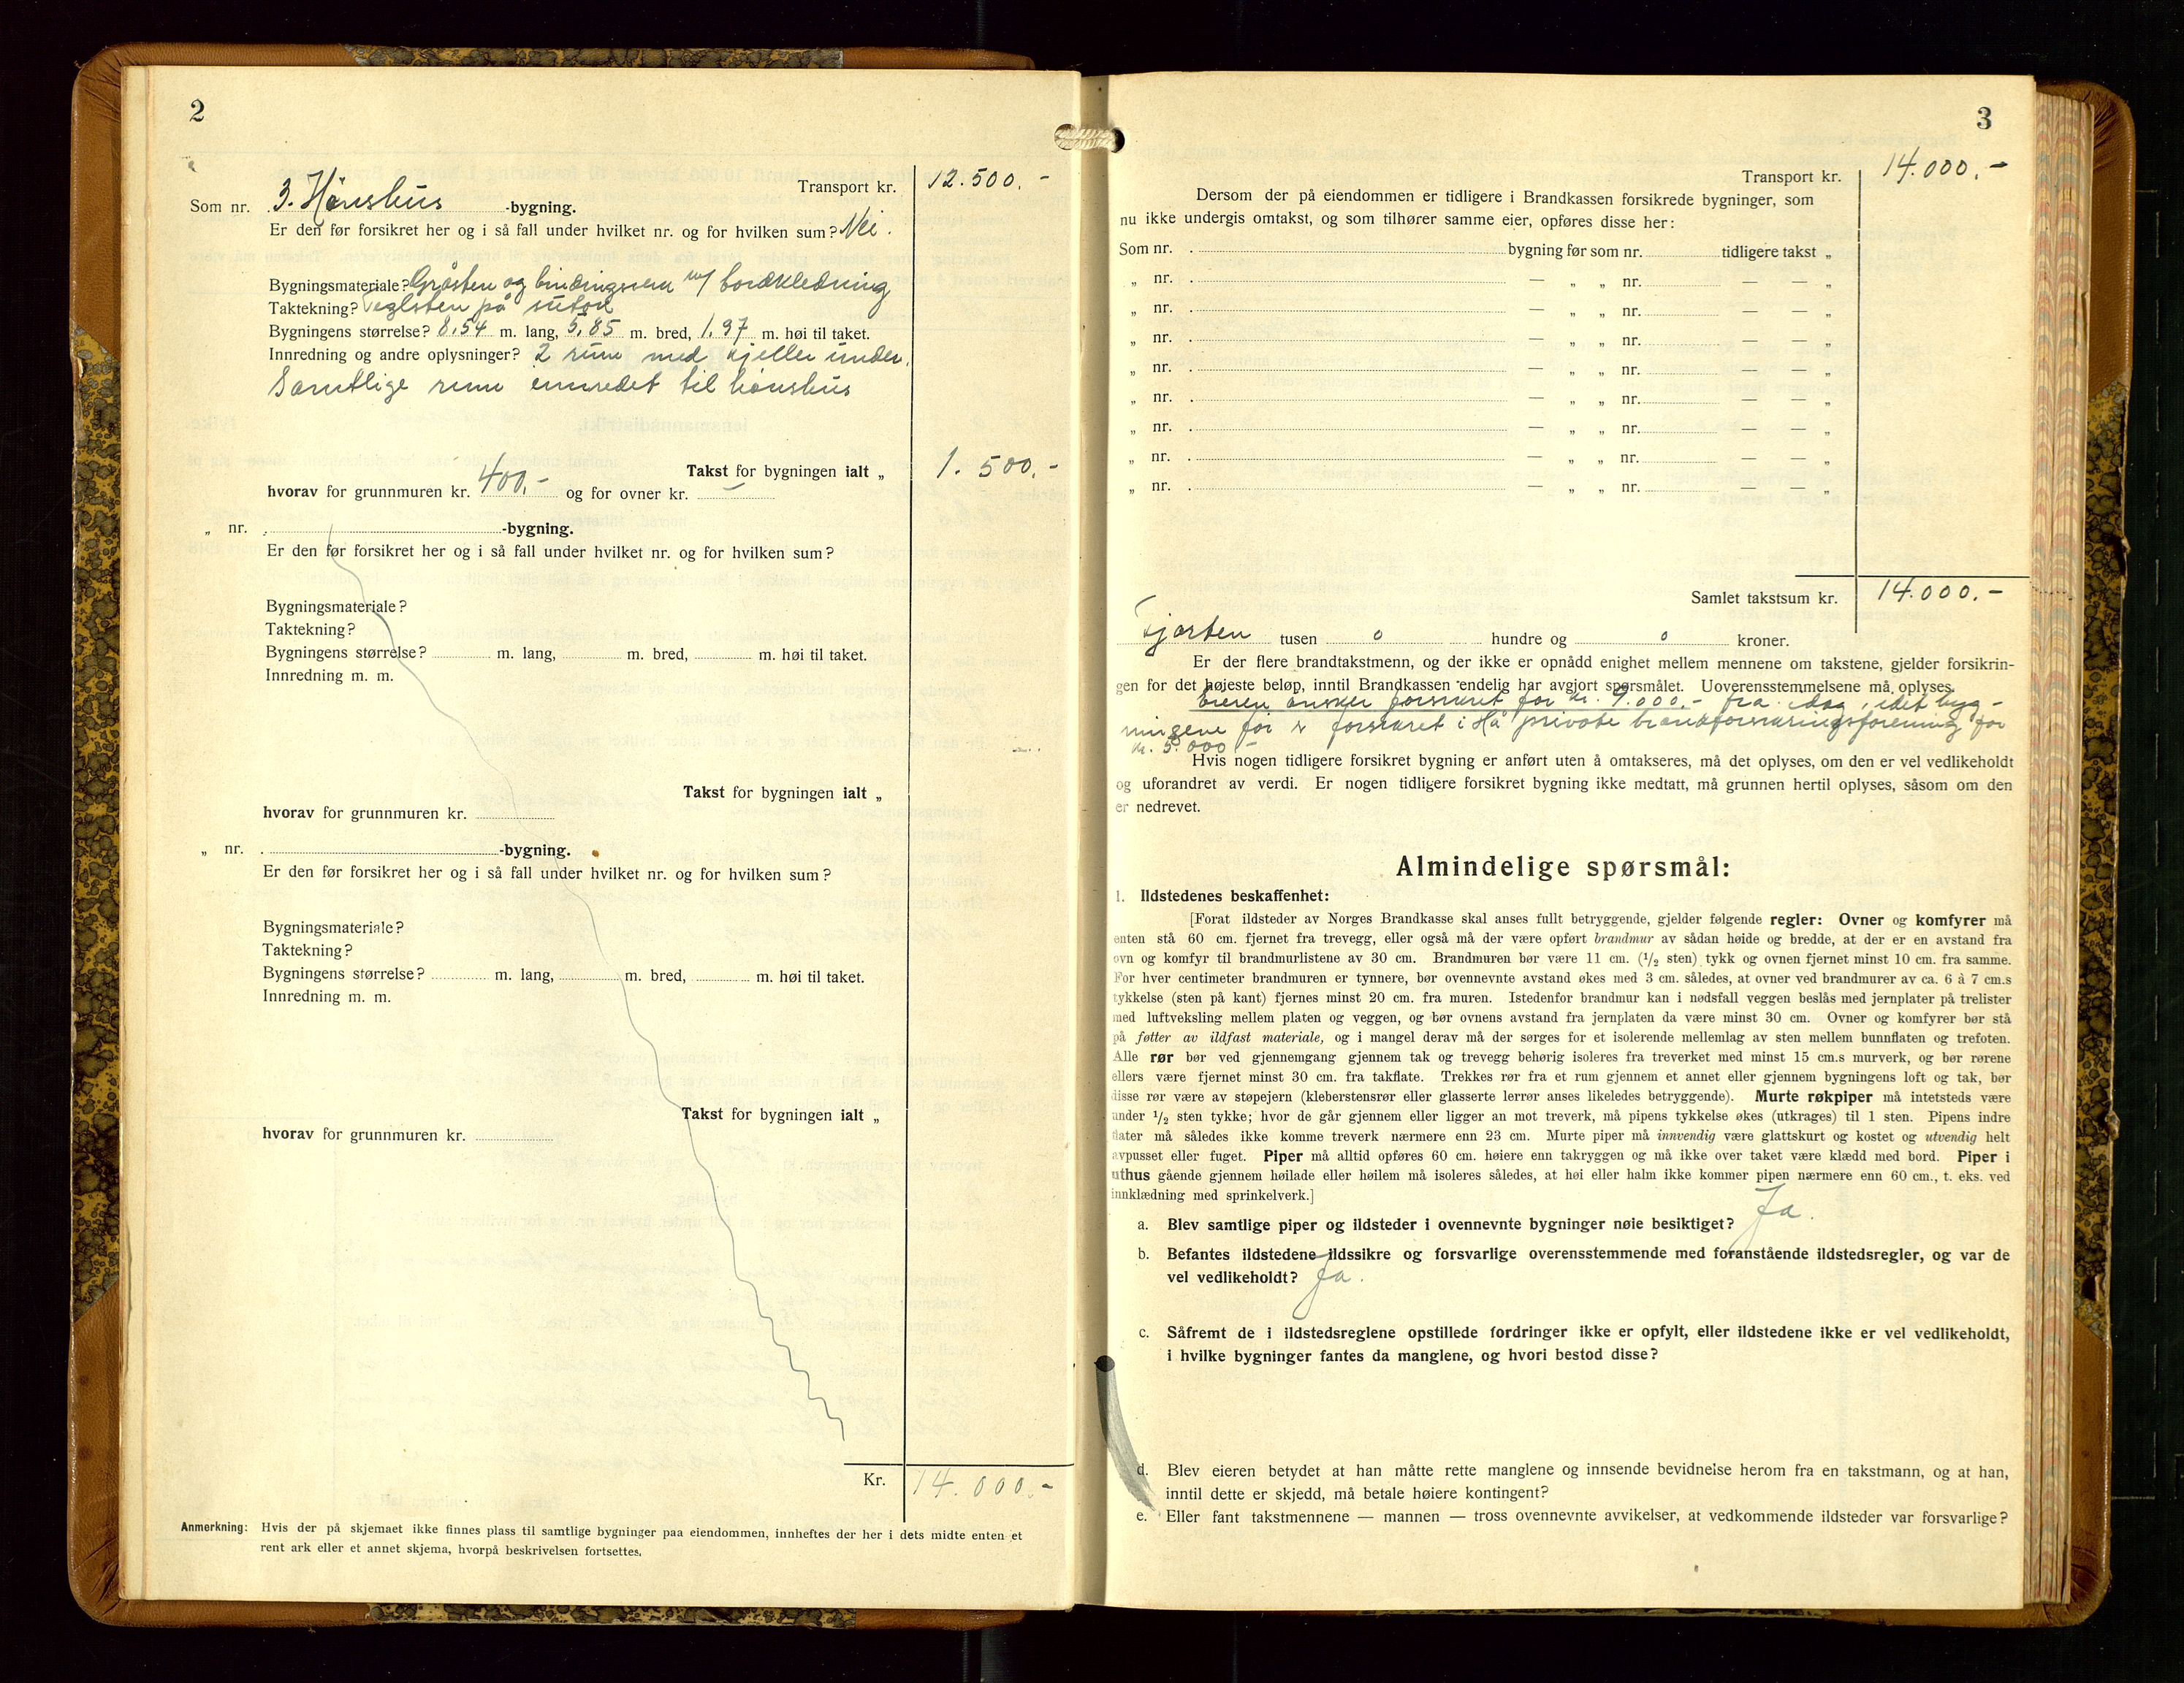 2
Transport kr. 12.500.-
Som nr. 3. Hønshus -bygning.
Er den før forsikret her og i så fall under hvilket nr. og for hvilken sum? Nei.
Bygningsmateriale? Gråsten og bindingsverk m/ bordkledning
Taktekning? Teglsten på sutak
Bygningens størrelse? 8,54 m. lang, 5,85 m. bred, 1,97 m. høi til taket.
Innredning og andre oplysninger? 2 rum med kjeller under.
Samtlige rum innredet til hønshus
Takst for bygningen ialt „ 1.500.-
hvorav for grunnmuren kr. 400.- og for ovner kr. —
„ nr. -bygning.
Er den før forsikret her og i så fall under hvilket nr. og for hvilken sum?
Bygningsmateriale?
Taktekning?
Bygningens størrelse? m. lang, m. bred, m. høi til taket.
Innredning m. m.
Takst for bygningen ialt „
hvorav for grunnmuren kr.
„ nr. -bygning.
Er den før forsikret her og i så fall under hvilket nr. og for hvilken sum?
Bygningsmateriale?
Taktekning?
Bygningens størrelse? m. lang, m. bred, m. høi til taket.
Innredning m. m.
Takst for bygningen ialt „
hvorav for grunnmuren kr.
Kr. 14.000.-
Anmerkning: Hvis der på skjemaet ikke finnes plass til samtlige bygninger paa eiendommen, innheftes der her i dets midte enten et
rent ark eller et annet skjema, hvorpå beskrivelsen fortsettes.
3
Transport kr. 14.000.-
Dersom der på eiendommen er tidligere i Brandkassen forsikrede bygninger, som
nu ikke undergis omtakst, og som tilhører samme eier, opføres disse her:
Som nr. bygning før som nr. tidligere takst „
„ nr. — „ „ nr. — — „
„ nr. — „ „ nr. — — „
„ nr. — „ „ nr. — — „
„ nr. — „ „ nr. — — „
„ nr. — „ „ nr. — — „
„ nr. — „ „ nr. — — „
„ nr. — „ „ nr. — — „
„ nr. — „ „ nr. — — „
Samlet takstsum kr. 14.000.-
Fjorten tusen o hundre og o kroner.
Er der flere brandtakstmenn, og der ikke er opnådd enighet mellem mennene om takstene, gjelder forsikrin-
gen for det højeste beløp, inntil Brandkassen endelig har avgjort spørsmålet. Uoverensstemmelsene må oplyses.
Eieren ønsker forsikret for kr. 9.000.- fra idag, idet byg-
ningene for er forsikret i Hå private brandforsikringsforening for
kr. 5.000.-
Hvis nogen tidligere forsikret bygning er anført uten å omtakseres, må det oplyses, om den er vel vedlikeholdt
og uforandret av verdi. Er nogen tidligere forsikret bygning ikke medtatt, må grunnen hertil oplyses, såsom om den
er nedrevet.
Almindelige spørsmål:
1. Ildstedenes beskaffenhet:
[Forat ildsteder av Norges Brandkasse skal anses fullt betryggende, gjelder følgende regler: Ovner og komfyrer må
enten stå 60 cm. fjernet fra trevegg, eller også må der være opført brandmur av sådan høide og bredde, at der er en avstand fra
ovn og komfyr til brandmurlistene av 30 cm. Brandmuren bør være 11 cm. (1/2 sten) tykk og ovnen fjernet minst 10 cm. fra samme.
For hver centimeter brandmuren er tynnere, bør ovennevnte avstand økes med 3 cm. således, at ovner ved brandmurer av ca. 6 à 7 cm.s
tykkelse (sten på kant) fjernes minst 20 cm. fra muren. Istedenfor brandmur kan i nødsfall veggen beslås med jernplater på trelister
med luftveksling mellem platen og veggen, og bør ovnens avstand fra jernplaten da være minst 30 cm. Ovner og komfyrer bør stå
på føtter av ildfast materiale, og i mangel derav må der sørges for et isolerende mellemlag av sten mellem bunnflaten og trefoten.
Alle rør bør ved gjennemgang gjennem tak og trevegg behørig isoleres fra treverket med minst 15 cm.s murverk, og bør rørene
ellers være fjernet minst 30 cm. fra takflate. Trekkes rør fra et rum gjennem et annet eller gjennem bygningens loft og tak, bør
disse rør være av støpejern (kleberstensrør eller glasserte lerrør anses likeledes betryggende). Murte røkpiper må intetsteds være
under 1/2 sten tykke; hvor de går gjennem eller ligger an mot treverk, må pipens tykkelse økes (utkrages) til 1 sten. Pipens indre
flater må således ikke komme treverk nærmere enn 23 cm. Murte piper må innvendig være glattskurt og kostet og utvendig helt
avpusset eller fuget. Piper må alltid opføres 60 cm. høiere enn takryggen og må ikke over taket være klædd med bord. Piper i
uthus gående gjennem høilade eller høilem må isoleres således, at høi eller halm ikke kommer pipen nærmere enn 60 cm., t. eks. ved
innklædning med sprinkelverk.]
a. Blev samtlige piper og ildsteder i ovennevnte bygninger nøie besiktiget? Ja.
b. Befantes ildstedene ildssikre og forsvarlige overensstemmende med foranstående ildstedsregler, og var de
vel vedlikeholdt? Ja.
c. Såfremt de i ildstedsreglene opstillede fordringer ikke er opfylt, eller ildstedene ikke er vel vedlikeholdt,
i hvilke bygninger fantes da manglene, og hvori bestod disse?
d. Blev eieren betydet at han måtte rette manglene og innsende bevidnelse herom fra en takstmann, og at han,
inntil dette er skjedd, må betale høiere kontingent?
e. Eller fant takstmennene — mannen — tross ovennevnte avvikelser, at vedkommende ildsteder var forsvarlige?